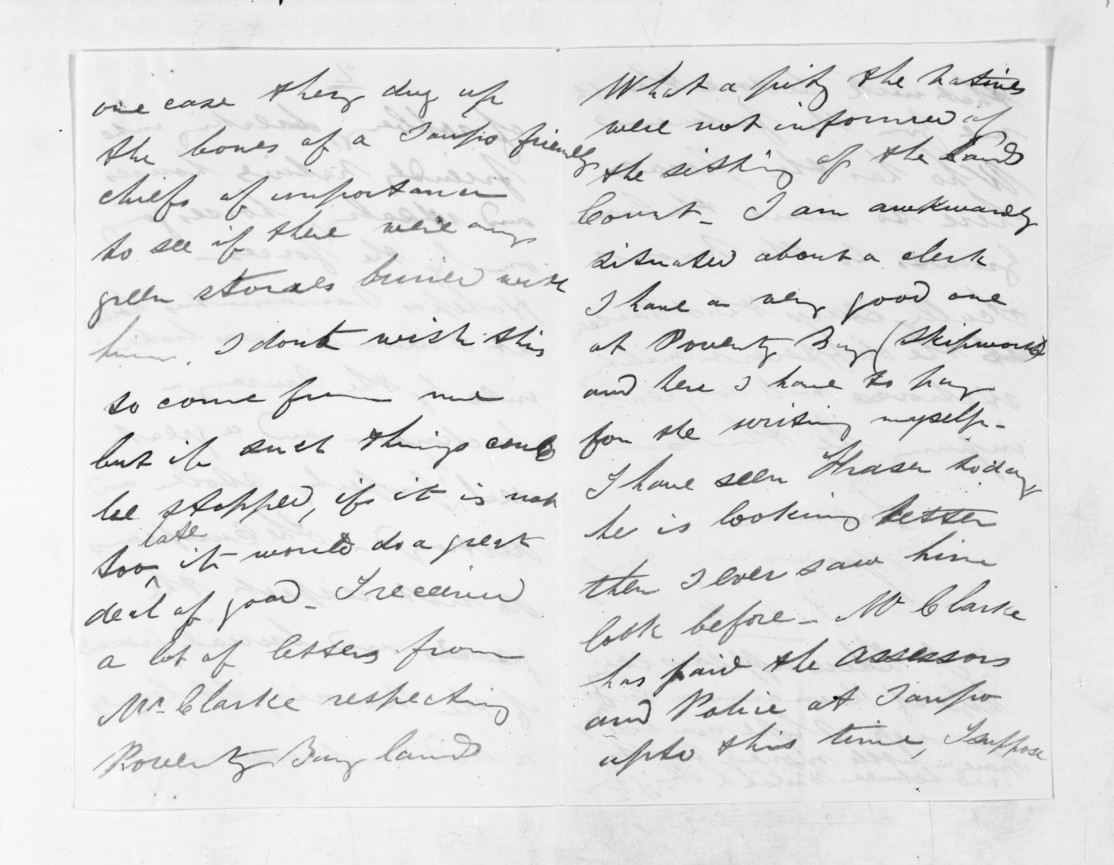 one case they dug up
the bones of a Taupo friendly
chiefs of importance
to see if there were any
green stones buried with
him. I dont wish this
to come from me
but if such things could
be stopped, if it is not
late
too it would do a great
deal of good _ I received
a lot of letters from
Mr. Clarke respecting
Poverty Bay lands
What a pity the natives
were not informed of
the sitting of the Lands
Court _ I am awkwardly
situated about a clerk
I have a very good one
at Poverty Bay (Skipworth)
and here I have to pay
for the writing myself _
I have seen Fraser today
he is looking better
then I ever saw him
look before _ Mr Clarke
has paid the assessors
and Police at Taupo
upto this time, I suppose